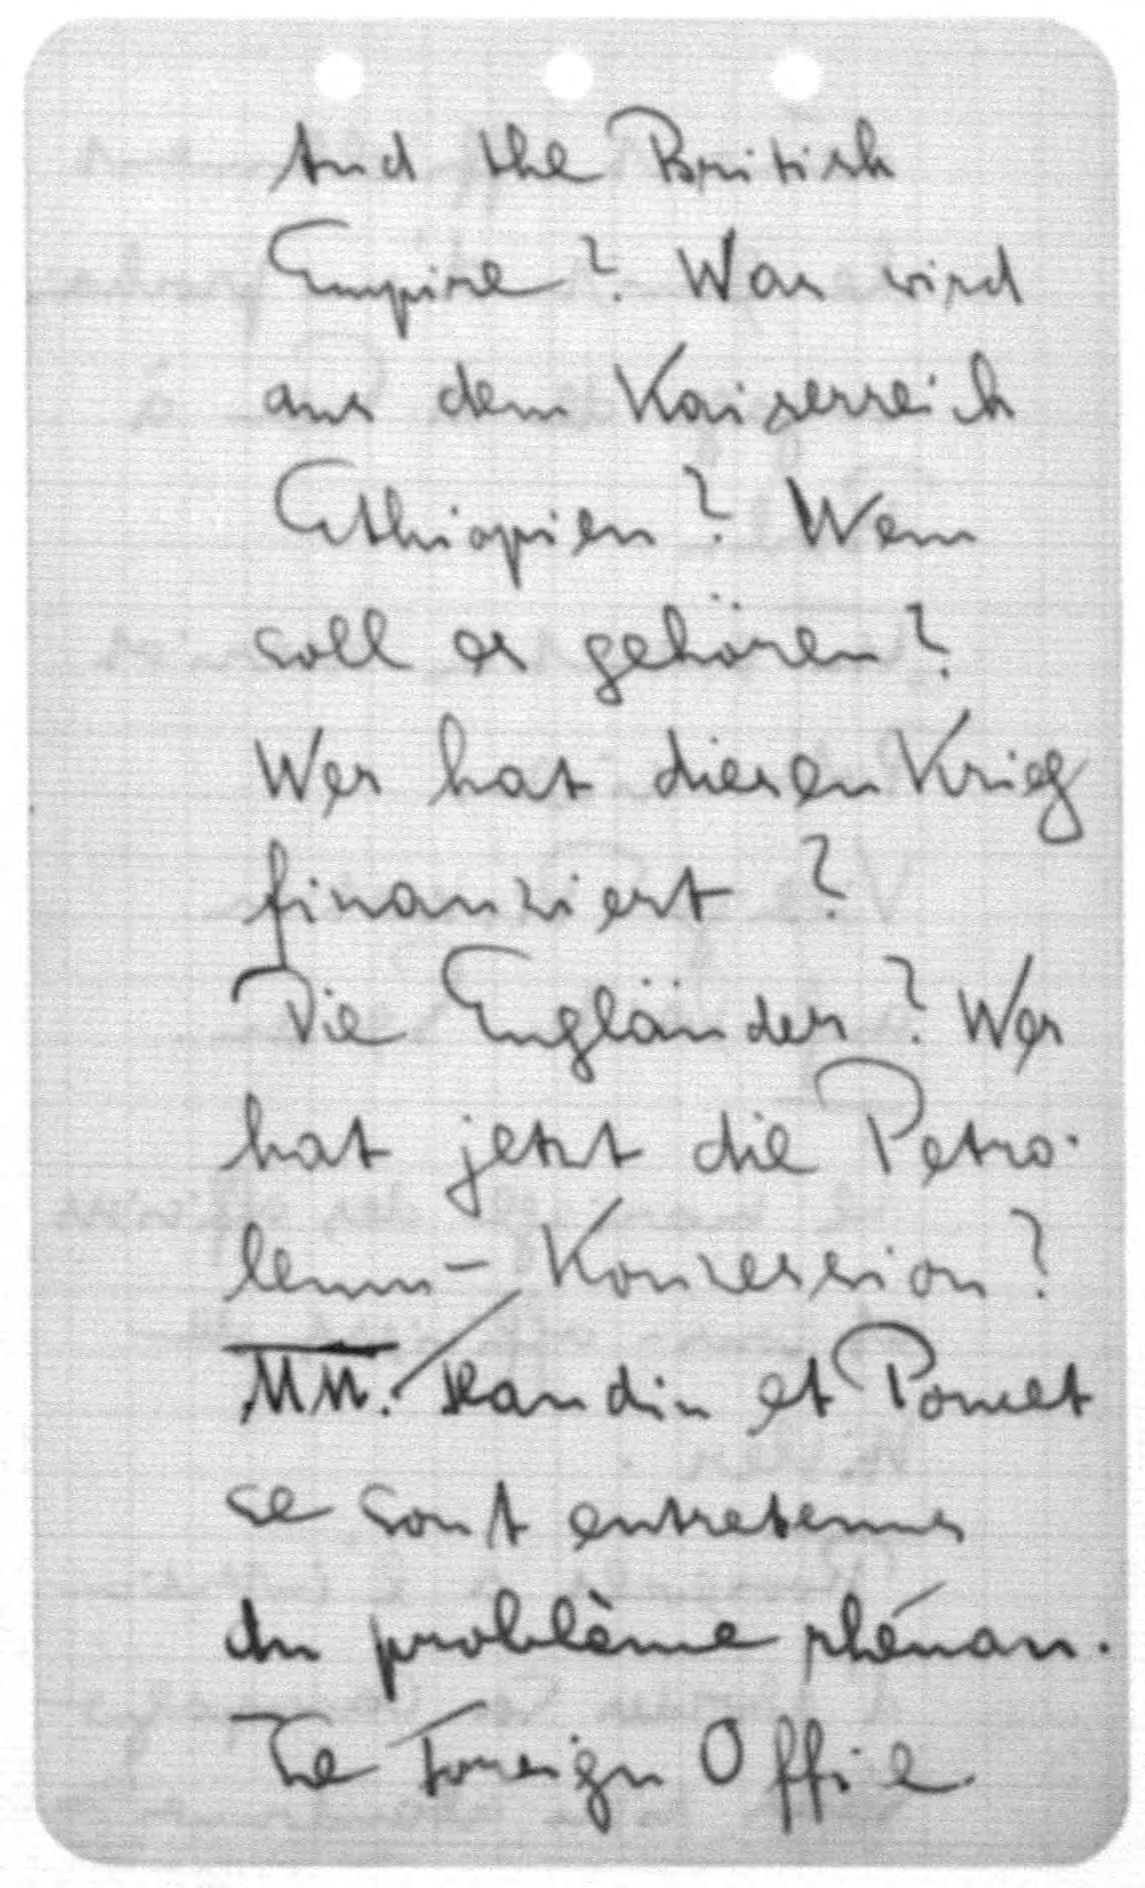 And the British
Empire? Was wird
aus dem Kaiserreich
Ethiopien? Wem
soll es gehören?
Wer hat diesen Krieg
finanziert?
Die Engländer? Wer
hat jetzt die Petro-
leum-Konzession?
MM. Flandin et Poncet
se sont entretenus
du problème rhénan.
Le Foreign Office